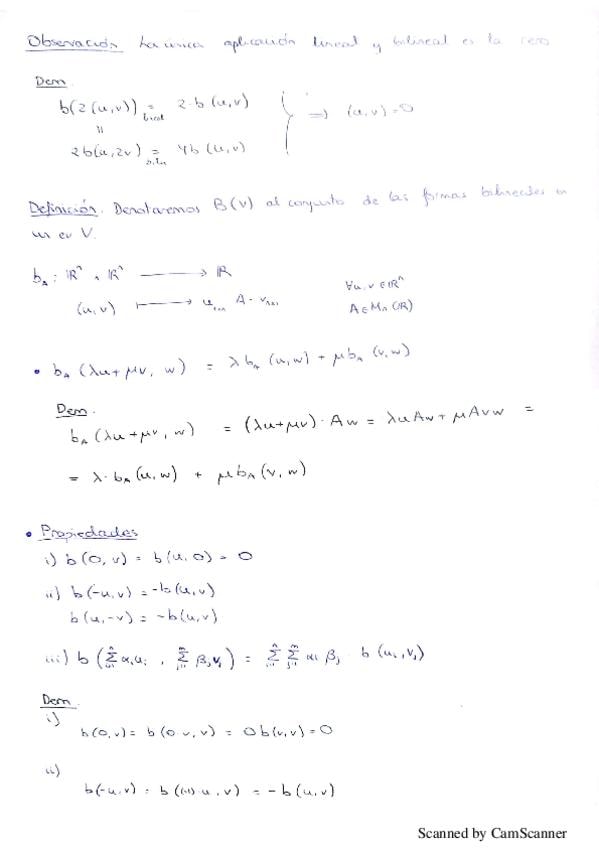 Observación. La única aplicación lineal y bilineal es la cero
Dem.
b(2(u,v)) = 2·b(u,v)
lineal
⇒ (u,v)=0
"
2b(u,2v) = 4b(u,v)
bilin
Definición. Denotaremos B(V) al conjunto de las formas bilineales en
un ev V.
b_A : ℝⁿ × ℝⁿ ⟶ ℝ
∀u,v ∈ ℝⁿ
(u,v) ⟼ u A · v
A ∈ Mn(ℝ)
• b_A (λu + μv, w) = λ b_A (u,w) + μ b_A (v,w)
Dem.
b_A (λu + μv, w) = (λu+μv)·Aw = λuAw + μAvw =
= λ·b_A (u,w) + μb_A (v,w)
• Propiedades
i) b(0,v) = b(u,0) = 0
ii) b(-u,v) = -b(u,v)
b(u,-v) = -b(u,v)
iii) b(∑ αᵢuᵢ , ∑ βⱼvⱼ) = ∑ ∑ αᵢ βⱼ b(uᵢ,vⱼ)
Dem.
i)
b(0,v) = b(0·v,v) = 0b(v,v) = 0
ii)
b(-u,v) = b((-1)·u,v) = -b(u,v)
Scanned by CamScanner